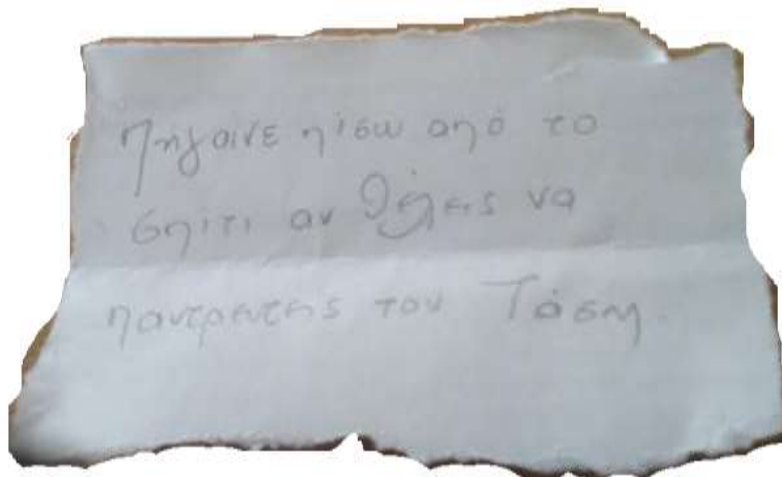 Πήγαινε πίσω από το
σπίτι αν θέλεις να
παντρευτείς τον Τάση.